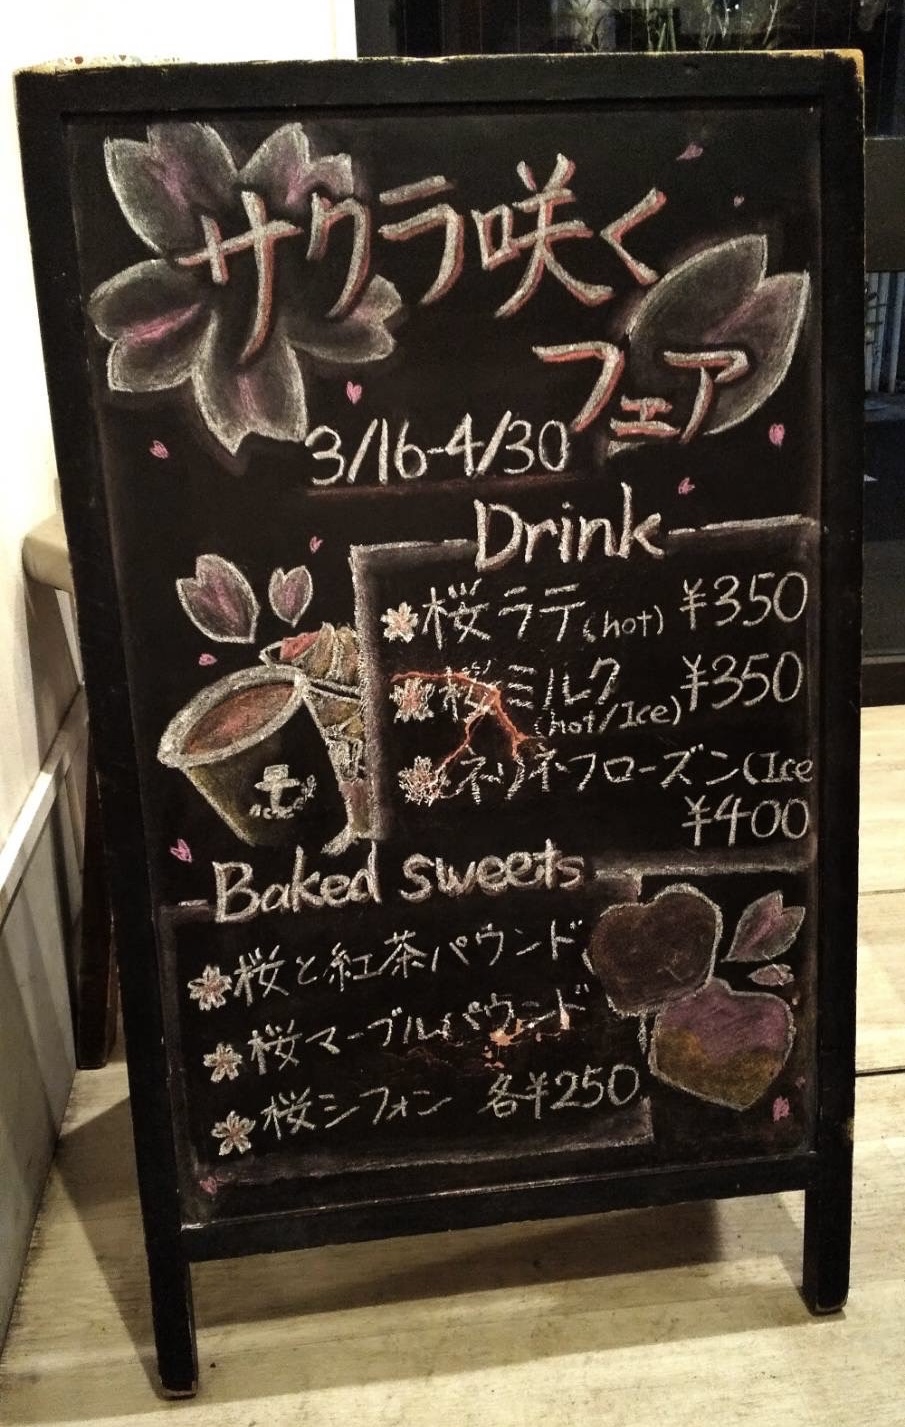 サクラ咲く
フェア
3/16-4/30
Drink
桜ラテ(hot) ¥350
桜ミルク ¥350
(hot/Ice)
フローズン(Ice
¥400
Baked sweets
桜と紅茶パウンド
桜マーブルパウンド
桜シフォン 各¥250